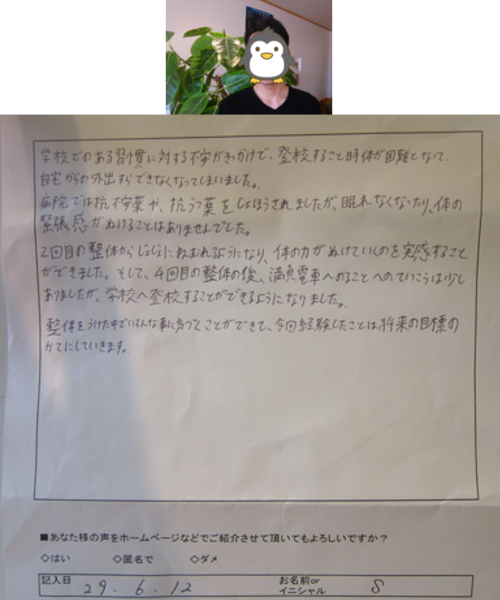 学校でのある習慣に対する不安がきっかけで、登校すること自体が困難となって
自宅からの外出すらできなくなってしまいました。
病院では抗不安薬や、抗うつ薬をしょほうされましたが、眠れなくなったり、体の
緊張感がぬけることはありませんでした。
2回目の整体からじょじょにねむれるようになり、体の力がぬけていくのを実感すること
ができました。そして、4回目の整体の後、満員電車へのることへのていこうは少し
ありましたが、学校へ登校することができるようになりました。
整体をうけた中でいろんな事に気づくことができて、今回経験したことは将来の目標の
かてにしていきます。
■あなた様の声をホームページなどでご紹介させて頂いてもよろしいですか?
◇はい ◇匿名で ◇ダメ
記入日 29. 6. 12 お名前or
イニシャル S